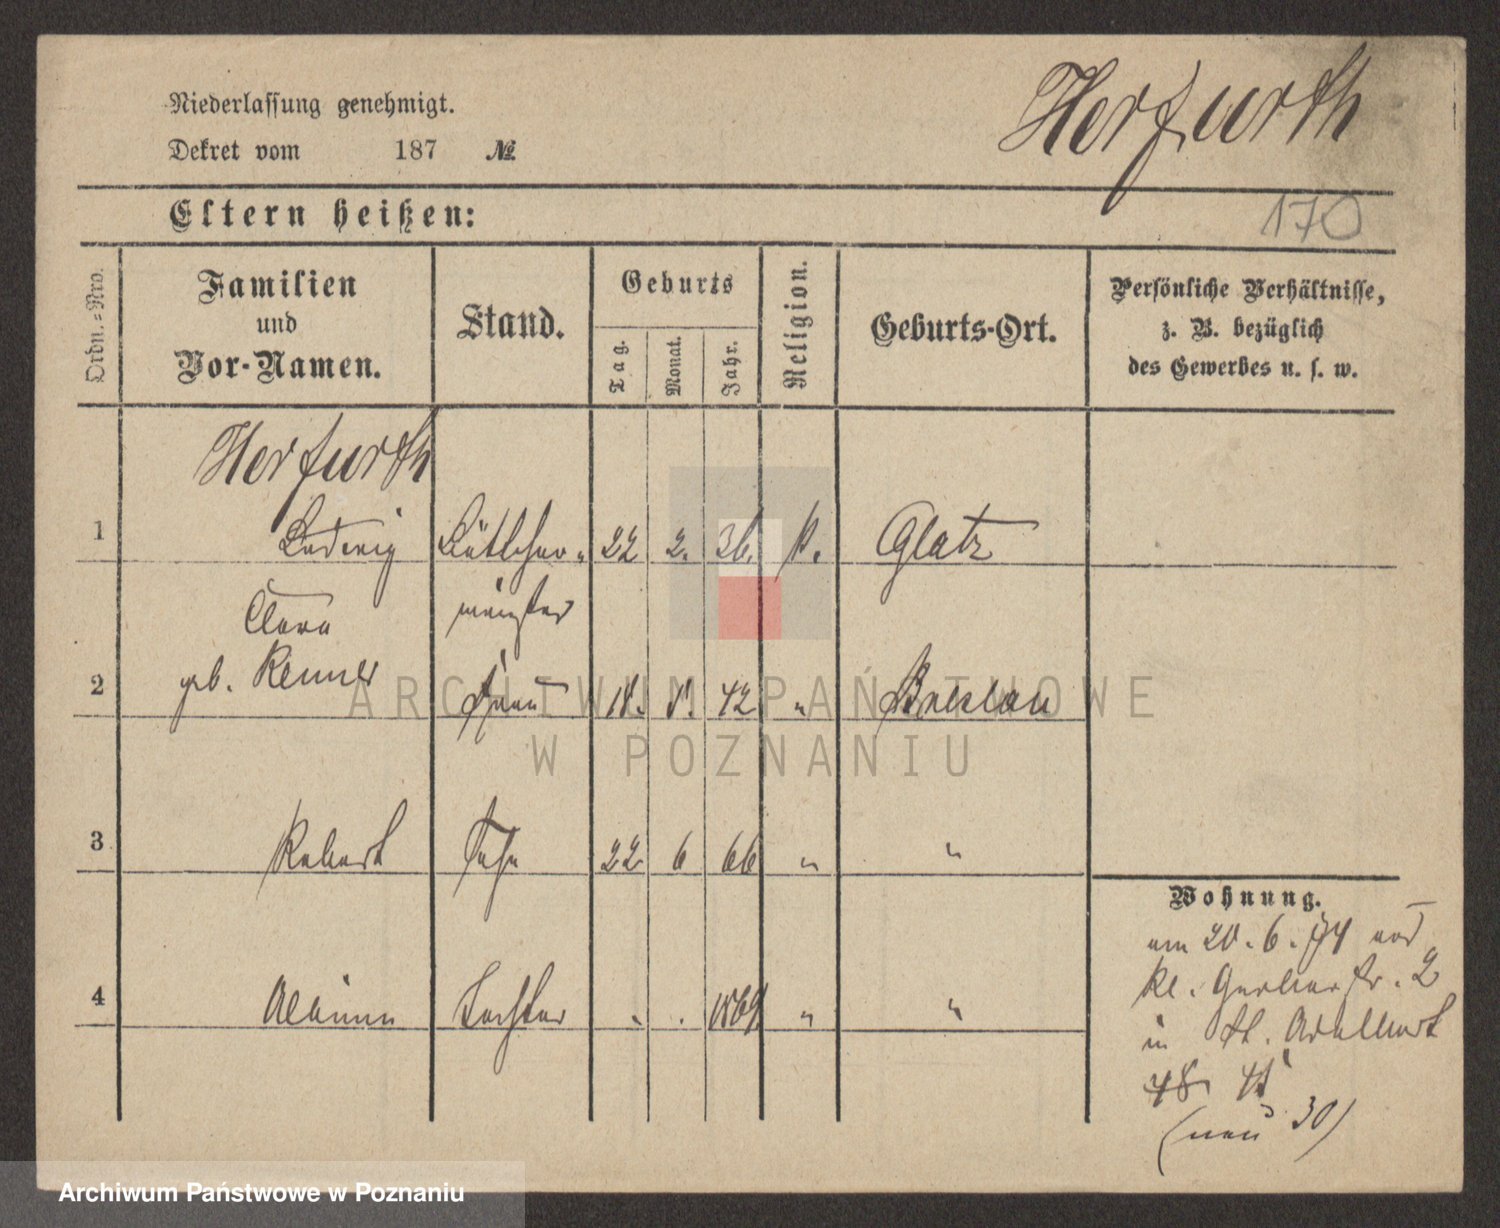 Herfurth
Niederlassung genehmigt.
Dekret vom 187 №
170
Eltern heißen:
Ordn.=Nro.
Familien
und
Vor-Namen.
Stand.
Geburts
Tag.
Monat.
Jahr.
Religion.
Geburts-Ort.
Persönliche Verhältnisse,
z. B. bezüglich
des Gewerbes u. s. w.
Herfurth
1 Ludwig Büttcher- 22 2. 36. k. Glatz
Clara meister
2 geb. Renner Frau 18. 8. 42 " Breslau
3 Robert Sohn 22 6 66 " "
4 Tochter . . 1869 " "
Wohnung.
am 20. 6. 74 von
kl. Gerberstr. 2
in St. Adalbert
48
(neu 30)
ARCHIWUM PAŃSTWOWE
W POZNANIU
Archiwum Państwowe w Poznaniu